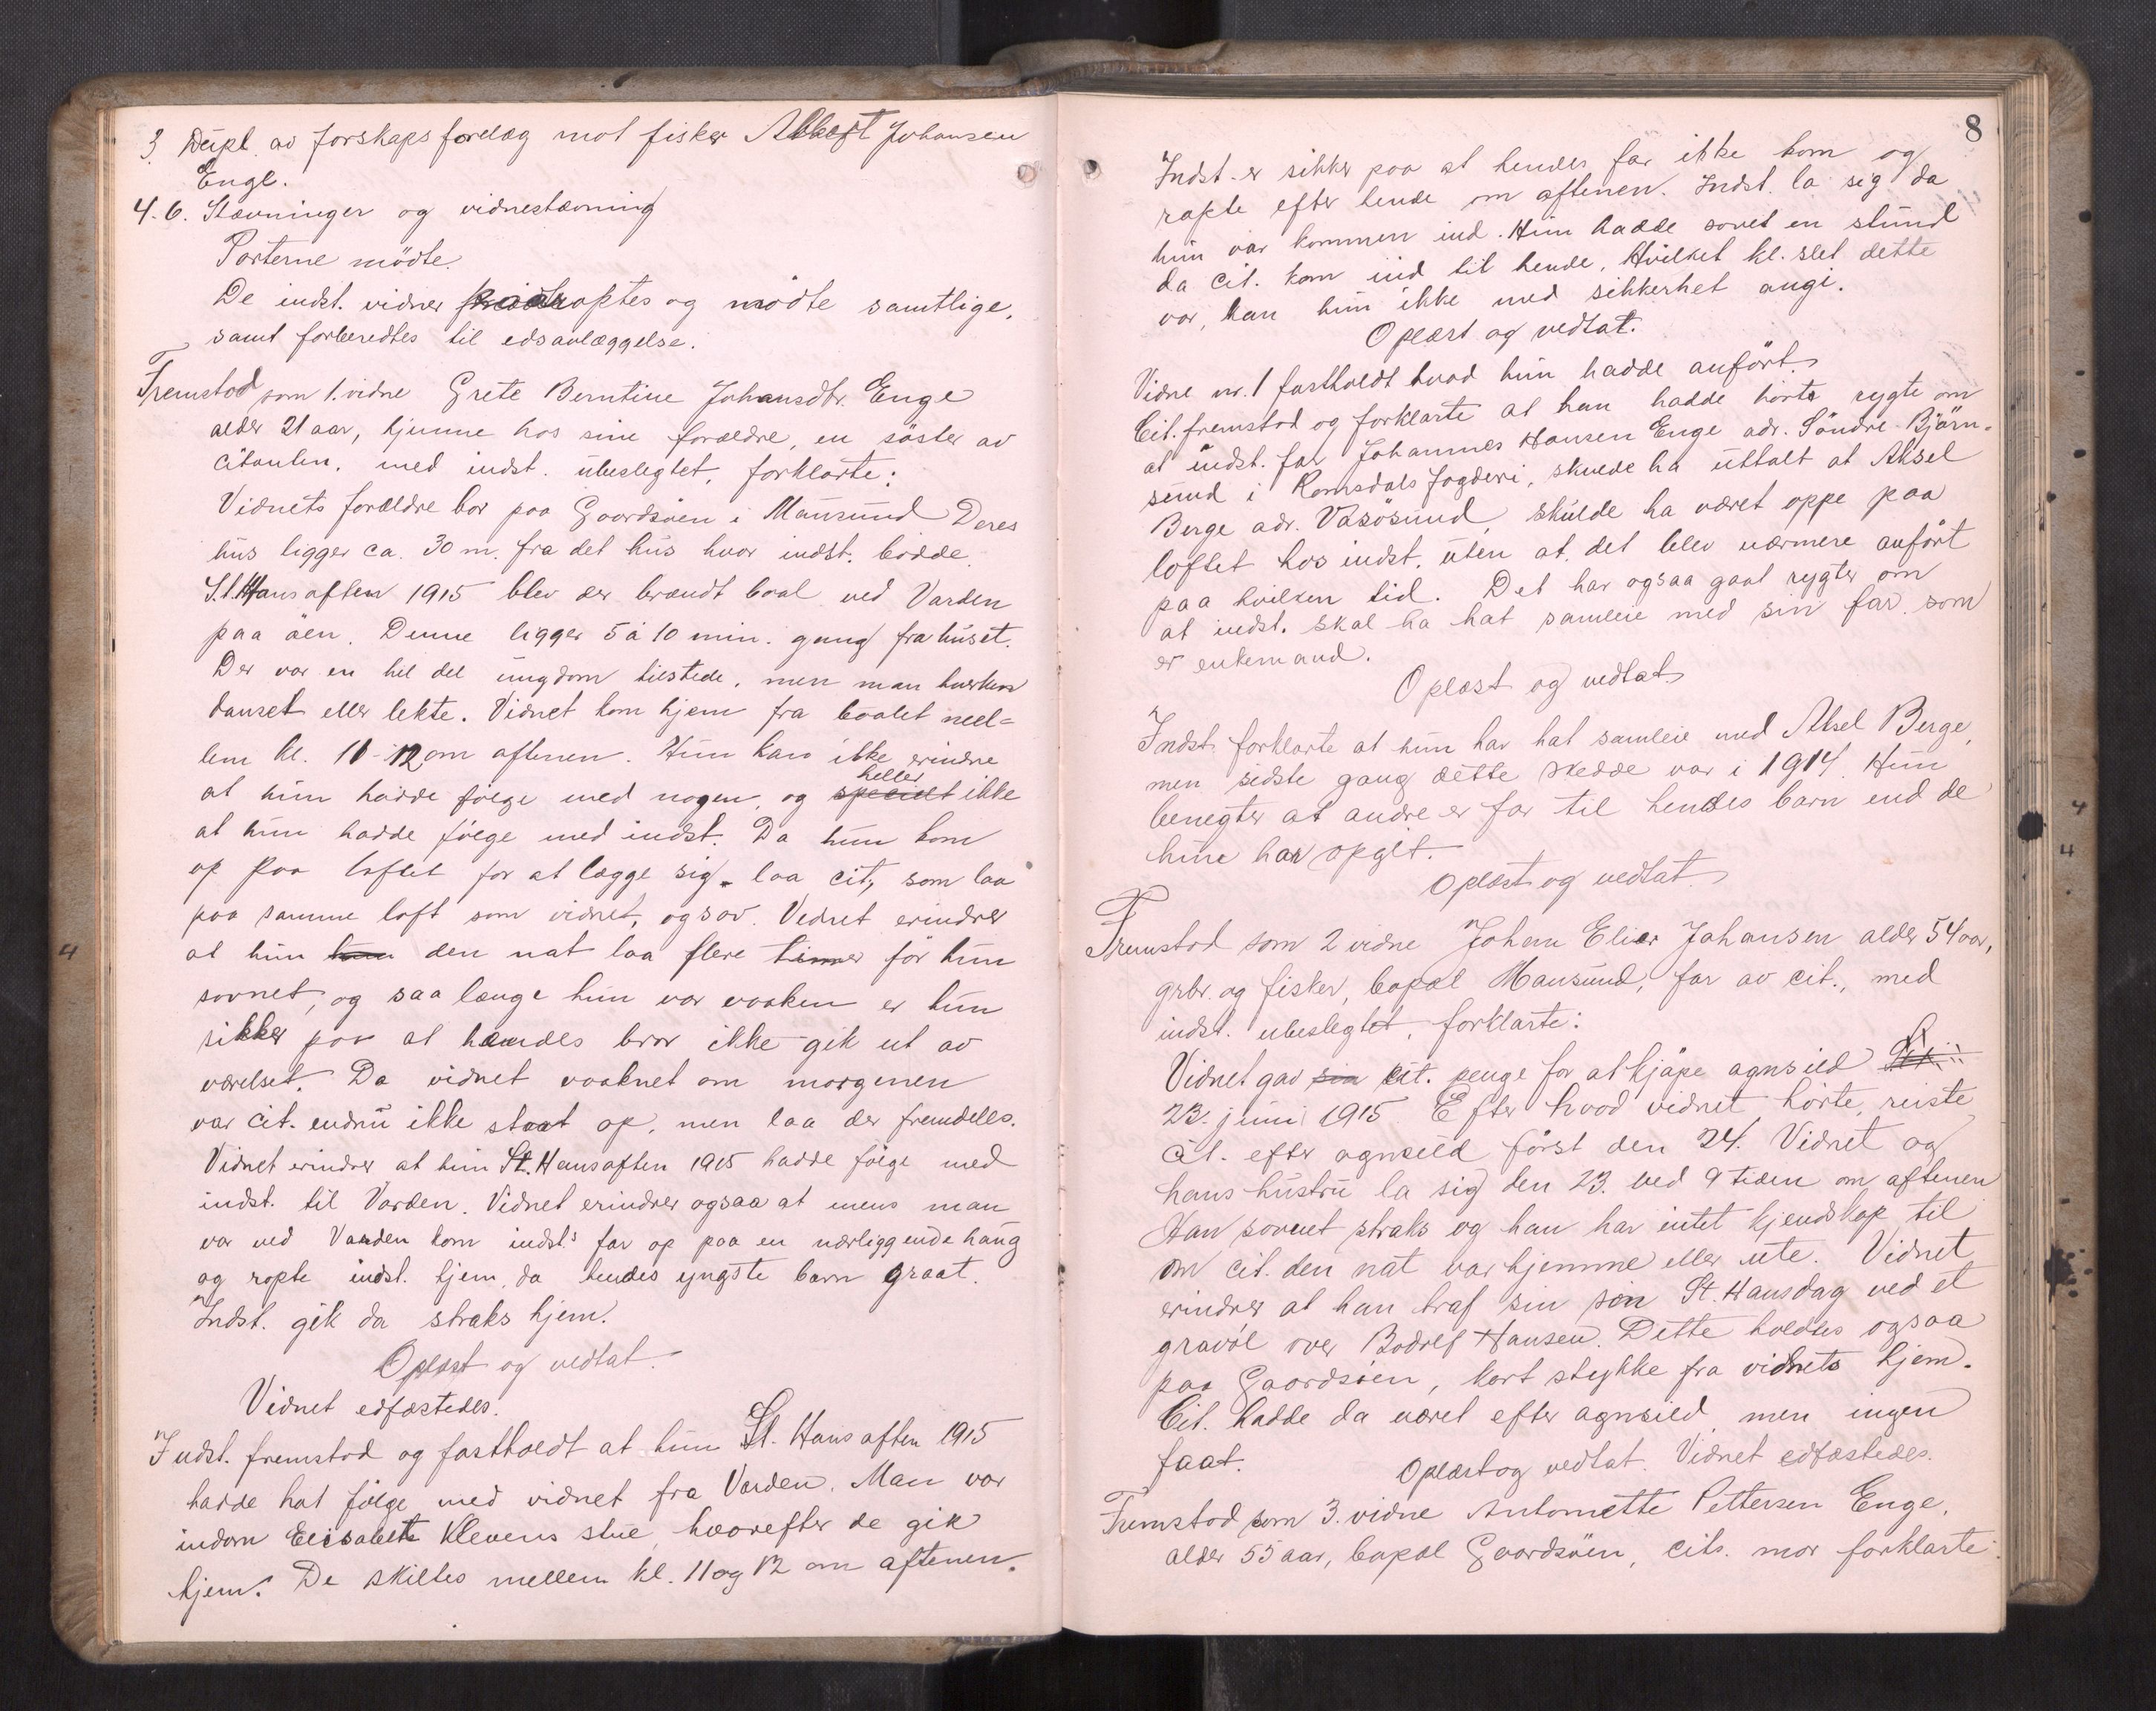 3 Dupl. av forskapsforelæg mot fisker Albert Johansen
Enge.
4.6. Stævninger og vidnestævning
Parterne mödte.
De indst. vidner roptes og mödte samtlige,
samt forberedtes til edsavlæggelse.
Fremstod som 1. vidne Grete Berntine Johansdtr. Enge
alder 21 aar, hjemme hos sine forældre, en söster av
citanten, med indst. ubeslegtet, forklarte:
Vidnets forældre bor paa Gaardsöen i Mausund Deres
hus ligger ca. 30 m. fra det hus hvor indst. bodde.
St. Hansaften 1915 blev der brændt baal ved Varden
paa öen. Denne ligger 5 á 10 min. gang fra huset.
Der var en hel del ungdom tilstede, men man hverken
danset eller lekte. Vidnet kom hjem fra baalet mel-
lem kl. 11-12 om aftenen. Hun kan ikke erindre
at hun hadde fölge med nogen, og specielt heller ikke
at hun hadde fölge med indst. Da hun kom
op paa loftet for at lægge sig, laa cit, som laa
paa samme loft som vidnet, og sov. Vidnet erindrer
at hun hun den nat laa flere timer för hun
sovnet, og saa længe hun var vaaken er hun
sikker paa at hendes bror ikke gik ut av
værelset. Da vidnet vaaknet om morgenen
var cit. endnu ikke staat op, men laa der fremdeles.
Vidnet erindrer at hun St. Hansaften 1915 hadde fölge med
indst. til Varden. Vidnet erindrer ogsaa at mens man
var ved Varden kom indst.s far op paa en nærliggende haug
og ropte indst. hjem, da hendes yngste barn graat.
Indst. gik da straks hjem.
Oplæst og vedtat.
Vidnet edfæstedes.
Indst. fremstod og fastholdt at hun St. Hansaften 1915
hadde hat fölge med vidnet fra Varden. Man var
indom Elisabeth Klevens stue, hvorefter de gik
hjem. De skiltes mellem kl. 11 og 12 om aftenen.
8
Indst. er sikker paa at hendes far ikke kom og
ropte efter hende om aftenen. Indst. la sig da
hun var kommen ind. Hun hadde sovet en stund
da cit. kom ind til hende. Hvilket kl. slet dette
var, kan hun ikke med sikkerhet angi.
Oplæst og vedtat.
Vidne nr. 1 fastholdt hvad hun hadde anfört.
Cit. fremstod og forklarte at han hadde hörte rygte om
at indst. far Johannes Hansen Enge adr. Söndre Björn-
sund i Romsdals fogderi, skulde ha uttalt at Aksel
Berge adr. Vasösund, skulde ha været oppe paa
loftet hos indst. uten at det blev nærmere anfört
paa hvilken tid. Det har ogsaa gaat rygter om
at indst. skal ha hat samleie med sin far som
er enkemand.
Oplæst og vedtat
Indst. forklarte at hun har hat samleie med Aksel Berge,
men sidste gang dette skedde var i 1914. Hun
benegter at andre er far til hendes barn end de
hun har opgit.
Oplæst og vedtat.
Fremstod som 2 vidne Johan Elier Johansen alder 54 aar,
grbr. og fisker, bopæl Mausund, far av cit., med
indst. ubeslegtet, forklarte:
Vidnet gav sin cit. penge for at kjöpe agnsild
23. juni 1915. Efter hvad vidnet hörte, reiste
cit. efter agnsild först den 24. Vidnet og
hans hustru la sig den 23. ved 9 tiden om aftenen
Han sovnet straks og han har intet kjendskap til
om cit. den nat var hjemme eller ute. Vidnet
erindrer at han traf sin sön St. Hansdag ved et
gravöl over Hansen. Dette holdtes ogsaa
paa Gaardsöen, kort stykke fra vidnets hjem.
Cit. hadde da været efter agnsild men ingen
faat.
Oplæst og vedtat. Vidnet edfæstedes.
Fremstod som 3. vidne Antonette Pettersen Enge,
alder 55 aar, bopæl Gaardsöen, cits. mor forklarte:
4
4
4